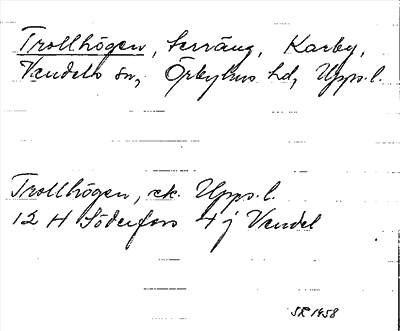 Trollhögen, terräng, Karby,
Vendels sn, Örbyhus hd, Upps. l.
Trollhögen, ek. Upps. l.
12 H Söderfors 4 j Vendel
SR 1958